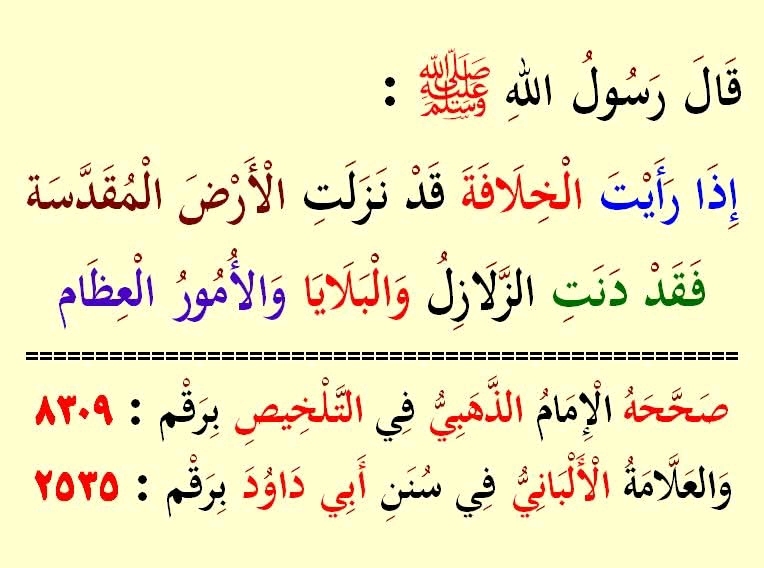 قَالَ رَسُولُ اللهِ ﷺ :
إِذَا رَأَيْتَ الْخِلَافَةَ قَدْ نَزَلَتِ الْأَرْضَ الْمُقَدَّسَة
فَقَدْ دَنَتِ الزَّلَازِلُ وَالْبَلَايَا وَالْأُمُورُ الْعِظَام
==================================================
صَحَّحَهُ الْإِمَامُ الذَّهَبِيُّ فِي التَّلْخِيصِ بِرَقْم : ٨٣٠٩
وَالعَلَّامَةُ الْأَلْبَانِيُّ فِي سُنَنِ أَبِي دَاوُدَ بِرَقْم : ٢٥٣٥